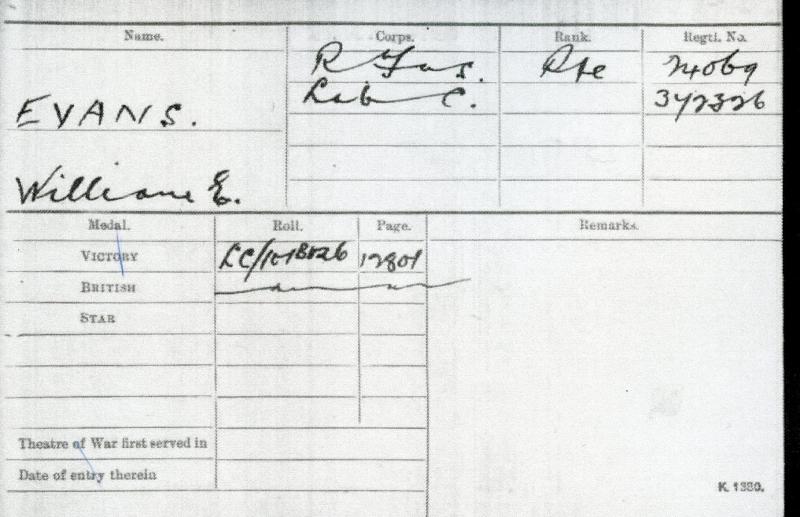 Name. Corps. Rank. Regtl. No.
R Fus. Pte 24069
EVANS. Lab C. 342326
William E.
Medal. Roll. Page. Remarks.
VICTORY 12801
BRITISH
STAR
Theatre of War first served in
Date of entry therein
K. 1380.